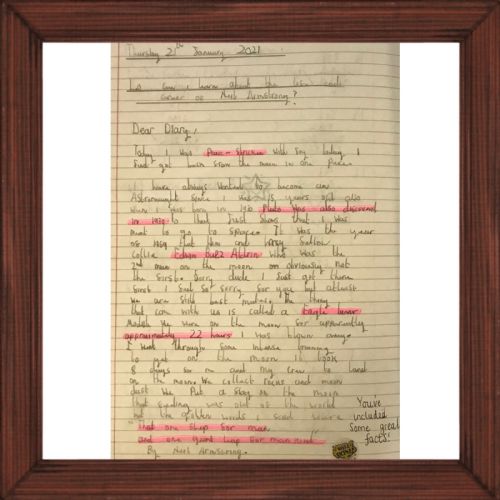 Thursday 21st January 2021
Lo can I learn about the life and
career of Neil Armstrong?
Dear Diary,
Today I was Panic-stricken with Joy today I
Just got back from the moon in one Piece
I have always wanted to become an
Astronaught Since I was 15 years old also
when I was born in 1930 Pluto was also discovered
in 1930 So that Just shows that I was
ment to go to Space. It was the year
of 1969 that him and
Edwin buzz Aldrin who was the
2nd man on the moon obviously not
the first. Sorry dude I Just got there
first I feel So sorry for you but atleast
We are Still best mates. The thing
that came with us is called a Eagle lunar
We were on the moon for apparantly
approximately 22 hours I was blown away
I went through Some intense training
to get on the moon It took
8 days for me and my crew to land
on the moon. We collect rocks and moon
dust We Put a flag on the moon
that was alot of the world
the golden words I said where
"That one Step for man
and one giant leap for man kind"
By Neil Armstrong.
You've
included
Some great
facts!